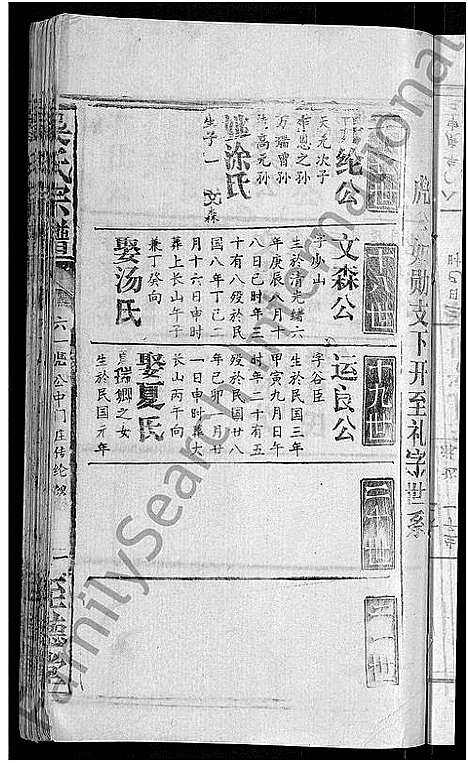 虎公如勋支下开至礼字世系
纶公
天元次子
季恩之孙
万瑞曾孙
高元孙
涂氏
生子一 文森
十八世
文森公
字少山
生於清光绪六
年庚辰八月十
八日己时年三
十有八殁於民
国八年丁己二
月十六日申时
葬上长山午子
兼丁癸向
娶汤氏
十九世
运良公
字谷臣
生於民国三年
甲寅九月日午
时年二十有五
殁於民国廿八
年己卯月廿
一日申时葬大
长山丙午向
娶夏氏
瑞卿之女
生於民国元年
二十世
二一世
吴氏宗谱
公中门庄传纶
一
至德堂
FamilySearch International